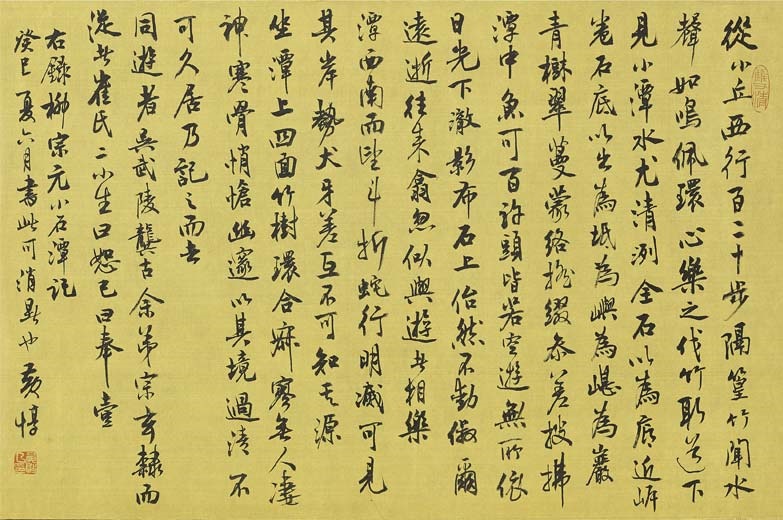 從小丘西行百二十步隔篁竹聞水
聲如鳴佩環心樂之伐竹取道下
見小潭水尤清冽全石以為底近岸
卷石底以出為坻為嶼為嵁為巖
青樹翠蔓蒙絡搖綴參差披拂
潭中魚可百許頭皆若空遊無所依
日光下澈影布石上佁然不動俶爾
遠逝往來翕忽似與遊者相樂
潭西南而望斗折蛇行明滅可見
其岸勢犬牙差互不可知其源
坐潭上四面竹樹環合寂寥無人淒
神寒骨悄愴幽邃以其境過清不
可久居乃記之而去
同遊者吳武陵龔古余弟宗玄隸而
從者崔氏二小生曰恕己曰奉壹
右錄柳宗元小石潭記
癸巳夏六月書此可消暑也黃惇